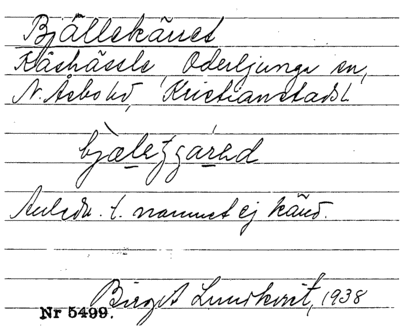 Bjällekäret
Käshässle, Oderljunga sn,
N. Åsbo hd, Kristianstads l.
Anledn. t. namnet ej känd.
Birgit Lundkvist, 1938
Nr 5499.